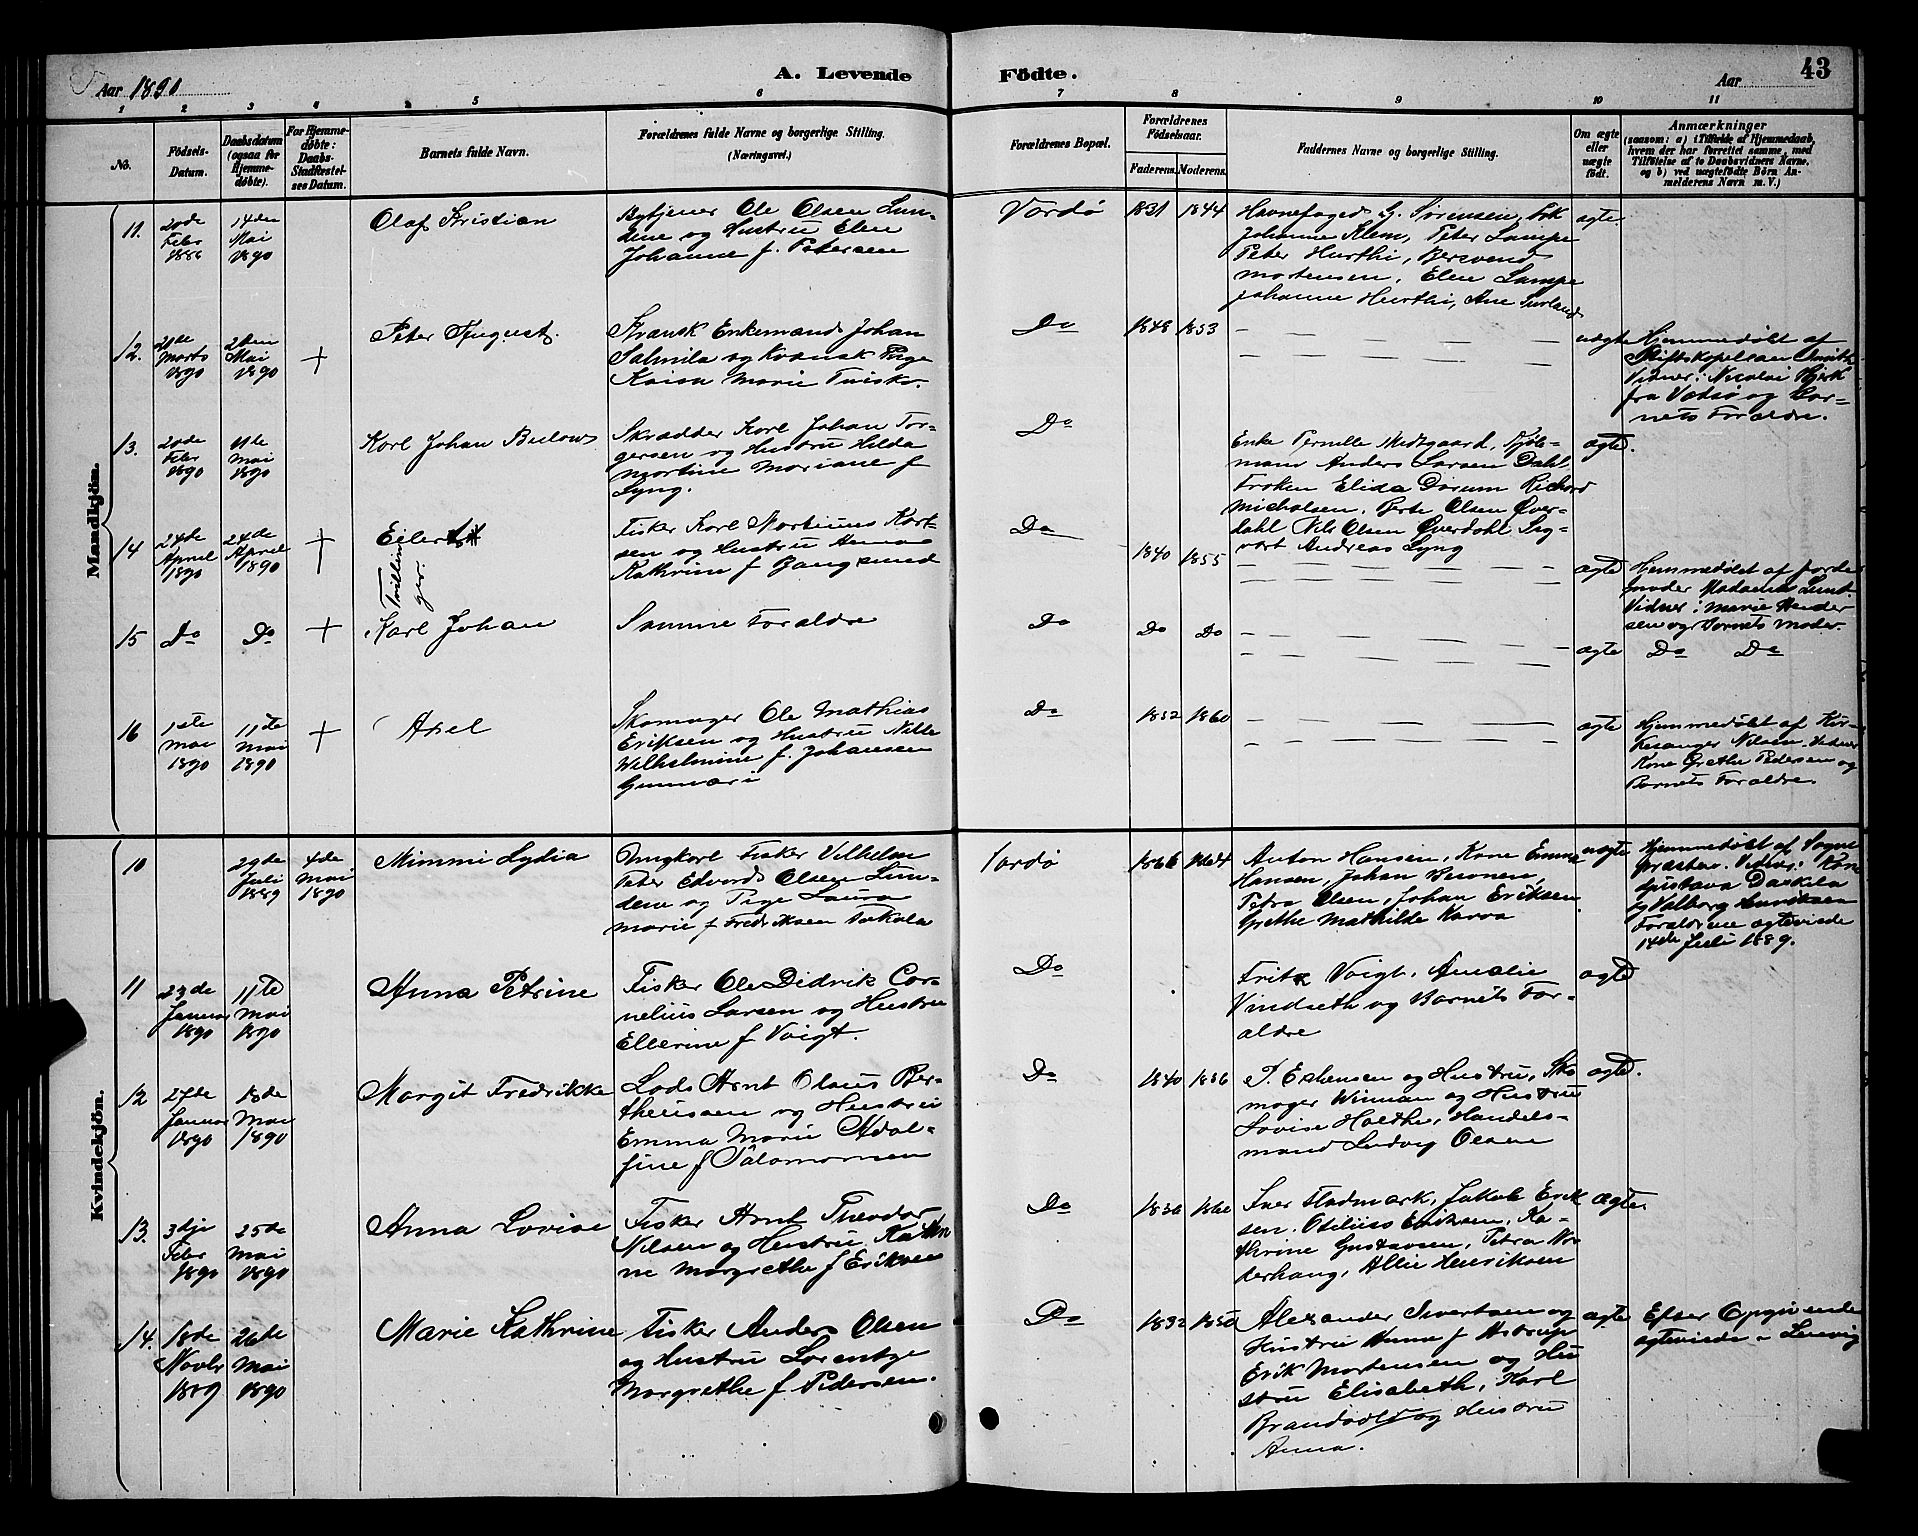 Aar 1890
A. Levende
Födte.
Aar
43
1 2 3 4 5 6 7 8 9 10 11
No.
Födsels-
Datum.
Daabsdatum
(ogsaa for
Hjemme-
døbte).
For Hjemme-
døbte:
Daabs-
Stadfæstel-
ses Datum.
Barnets fulde Navn.
Forældrenes fulde Navne og borgerlige Stilling.
(Næringsvei.)
Forældrenes Bopæl.
Forældrenes
Fødselsaar.
Faderens. Moderens.
Faddernes Navne og borgerlige Stilling.
Om ægte
eller
uægte
født.
Anmærkninger
(saasom: a) i Tilfælde af Hjemmedaab,
hvem der har forrettet samme, med
Tilføielse af to Daabsvidners Navne,
og b) ved uægtefødte Börn An-
melderens Navn m. V.)
Mandkjön.
11.
20de
Febr
1886
14de
Mai
1890
Olaf Kristian
Bytjener Ole Olsen Lun-
dene og Hustru Elen
Johanne f. Petersen
Vardø
1831 1844
Havnefoged G. Sørensen, Frk
Johanne Klem, Peter Lampe
Peter Hurthi, Bersvend
Mortensen, Elen Lampe
Johanne Hurthi, Ane
ægte
12.
21de
Marts
1890
Mai
1890
+
Peter August.
Kvænsk Enkemand Johan
Salmila og Kvænsk Pige
Kaisa Marie Tuisko.
Do
1848 1853
uægte
Hjemmedøbt af
Stiftskapellan Smith
Vidner: Nicolai Bjerk
fra Vadsø og Bar-
nets Forældre.
13.
20de
Febr
1890
11te
Mai
1890
Karl Johan Bulow
Skrædder Karl Johan Tor-
gersen og Hustru Hilda
Martine Mariane f
Lyng.
Do
Enke Pernille Midtgaard, Kjøb-
mann Anders Larsen Dahl,
Frøken Elida Dørum Richard
Micholsen, Berte Olsen Over-
dahl Nils Olsen Overdahl Sig-
vart Andreas Lyng
ægte.
14
24de
April
1890
24de
April
1890
+
Eilert
Tvillin
ger.
Fisker Karl Martinus Karl-
sen og Hustru Anna
Kathrine f Bangsund
Do
1840 1855
ægte
Hjemmedøbt af Jorde
moder Madame Lund.
Vidner: Marie Ander
sen og Barnets Moder.
15
Do Do
+
Karl Johan
Samme Forældre
Do
Do Do
ægte
Do Do
16
1ste
Mai
1890
11te
Mai
1890
+
Axel
Skomager Ole Mathias
Eriksen og Hustru Nille
Wilhelmine f. Johansen
Gunnari
Do
1852 1860
ægte
Hjemmedøbt af Kir-
kesanger Nilsen. Vidner
Kone Grethe Pedersen og
Barnets Forældre.
Kvindekjön.
10
29de
Juli
1889
4de
Mai
1890
Mimmi Lydia
Ungkarl Fisker Vilhelm
Peter Edvard Olsen Lun-
dene og Pige Laura
Marie f Fredriksen Takala
Vardø
1866 1864
Anton Hansen, Kone Emma
Hansen, Johan Beronen,
Petra Olsen, Johan Eriksen
Grethe Mathilde Karva
uægte
Hjemmedøbt af Sogne
præsten. Vidner: Kone
Gustava Daskela
og Valborg Henriksen
Forældrene ægteviede
14de Juli 1889.
11
23de
Januar
1890
11te
Mai
1890
Anna Petrine
Fisker Ole Didrik Cor-
nelius Larsen og Hustru
Ellerine f Voigt.
Do
Fritz Voigt, Amalie
Vindseth og Barnets For-
ældre
ægte
12
27de
Januar
1890
18de
Mai
1890
Margit Fredrikke
Lods Arnt Olaus Ber-
theussen og Hustru
Emma Marie Adol-
fine f Salomonsen
Do
1840 1856
P. Esbensen og Hustru, Sko
mager Winman og Hustru
Lovise Holthe, Handels-
mand Ludvig Olsen
ægte.
13.
3dje
Febr
1890
25de
Mai
1890
Anna Lovise
Fisker Arnt Theodor
Nilsen og Hustru Kathri
ne Margrethe f Eriksen
Do
1856 1860
Iver Stadmark, Jakob Erik
sen. Otelius Eriksen, Ka-
thrine Gustavsen, Petra No
derhaug, Allie Henriksen
ægte.
14.
18de
Novbr
1889
26de
Mai
1890
Marie Kathrine
Fisker Anders Olsen
og Hustru Lorentze
Margrethe f Pedersen.
Do
1852 1850
Alexander Sivertsen og
Hustru Anna f Astrup
Erik Mortensen og Hu
stru Elisabeth, Karl
Brandvold og Hustru
Anna.
ægte
Efter Opgivende
ægteviede i Lenvig